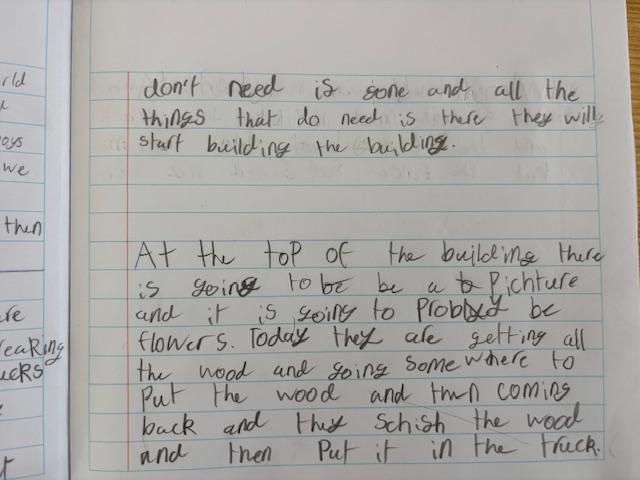 rld
oys
we
then
are
reaking
ucks
don't need is gone and all the
things that do need is there they will
start building the building.
At the top of the building there
is going to be be a Pichture
and it is going to Probly be
flowers. Today they are getting all
the wood and going somewhere to
Put the wood and then coming
back and they Schish the wood
and then Put it in the truck.